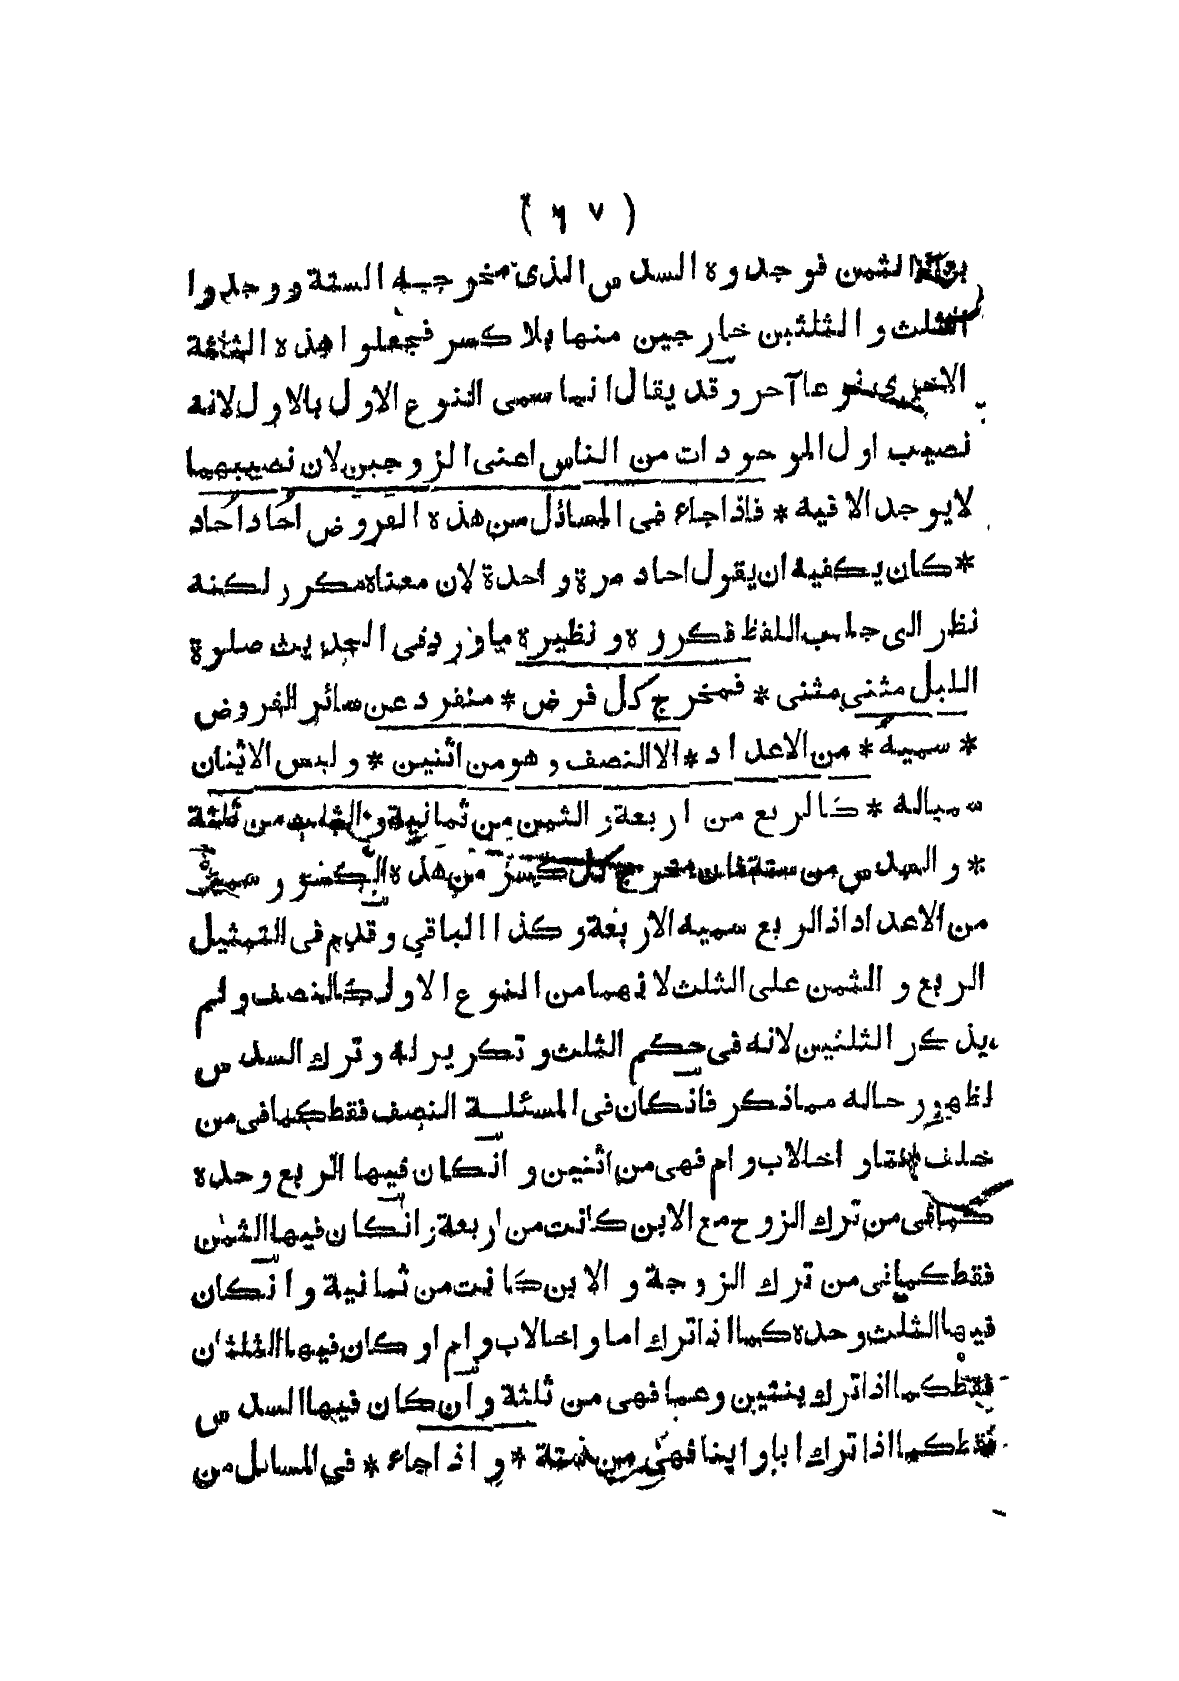 ( ٦٧ )
الثمن فوجدوه السدس الذى مخرجه الستة ووجدوا
الثلث والثلثين خارجين منها بلا كسر فجعلوا هذه الثلثة
الاخرى نوعا آخر وقد يقال انما سمى النوع الاول بالاول لانه
نصيب اول الموجودات من الناس اعنى الزوجين لان نصيبهما
لايوجد الا فيه * فاذا جاء فى المسائل من هذه الفروض احاد احاد
* كان يكفيه ان يقول احاد مرة واحدة لان معناه مكرر لكنه
نظر الى جانب اللفظ فكرره ونظيره ما ورد فى الحديث صلوة
الليل مثنى مثنى * فمخرج كل فرض * منفرد عن سائر الفروض
* سميه * من الاعداد * الا النصف وهو من اثنين * وليس الاثنان
سمياله * كالربع من اربعة والثمن من ثمانية والثلث من ثلثة
* والسدس من ستة فان مخرج كل كسر من هذه الكسور سميه
من الاعداد اذ الربع سميه الاربعة وكذا الباقي وقدم فى التمثيل
الربع والثمن على الثلث لانهما من النوع الاول كالنصف ولم
يذكر الثلثين لانه فى حكم الثلث وتكرير له وترك السدس
لظهور حاله مما ذكر فاذكان فى المسئلة النصف فقط كما فى من
خلف بنتا و اخالاب وام فهى من اثنين و انكان فيها الربع وحده
كما فى من ترك الزوج مع الابن كانت من اربعة وانكان فيها الثمن
فقط كما فى من ترك الزوجة و الابن كانت من ثمانية و انكان
فيها الثلث وحده كما اذا ترك اما و اخالاب وام او كان فيها الثلثان
فقط كما اذا ترك بنتين وعما فهى من ثلثة وان كان فيها السدس
فقط كما اذا ترك ابا و ابنا فهى من ستة * و اذا جاء * فى المسائل من